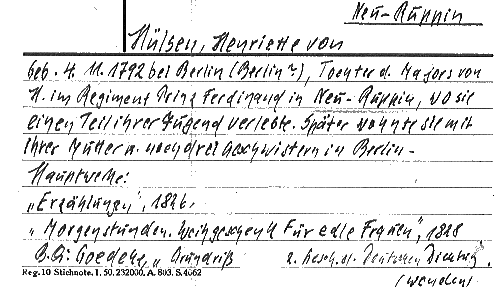 Neu-Ruppin
Hülsen, Henriette von
geb. 4. 11. 1792 bei Berlin (Berlin?), Tochter d. Majors von
H. im Regiment Prinz Ferdinand in Neu-Ruppin, wo sie
einen Teil ihrer Jugend verlebte. Später wohnte sie mit
ihrer Mutter u. noch drei Geschwistern in Berlin-
Hauptwerke:
„Erzählungen", 1826.
„Morgenstunden. Weihgeschenk für edle Frauen", 1828
B. A: Goedeke, „Grundriß z. Gesch. d. Deutschen Dichtung".
Reg. 10 Stichnote. I. 50. 232000. A. 803. S. 4062
(wenden)